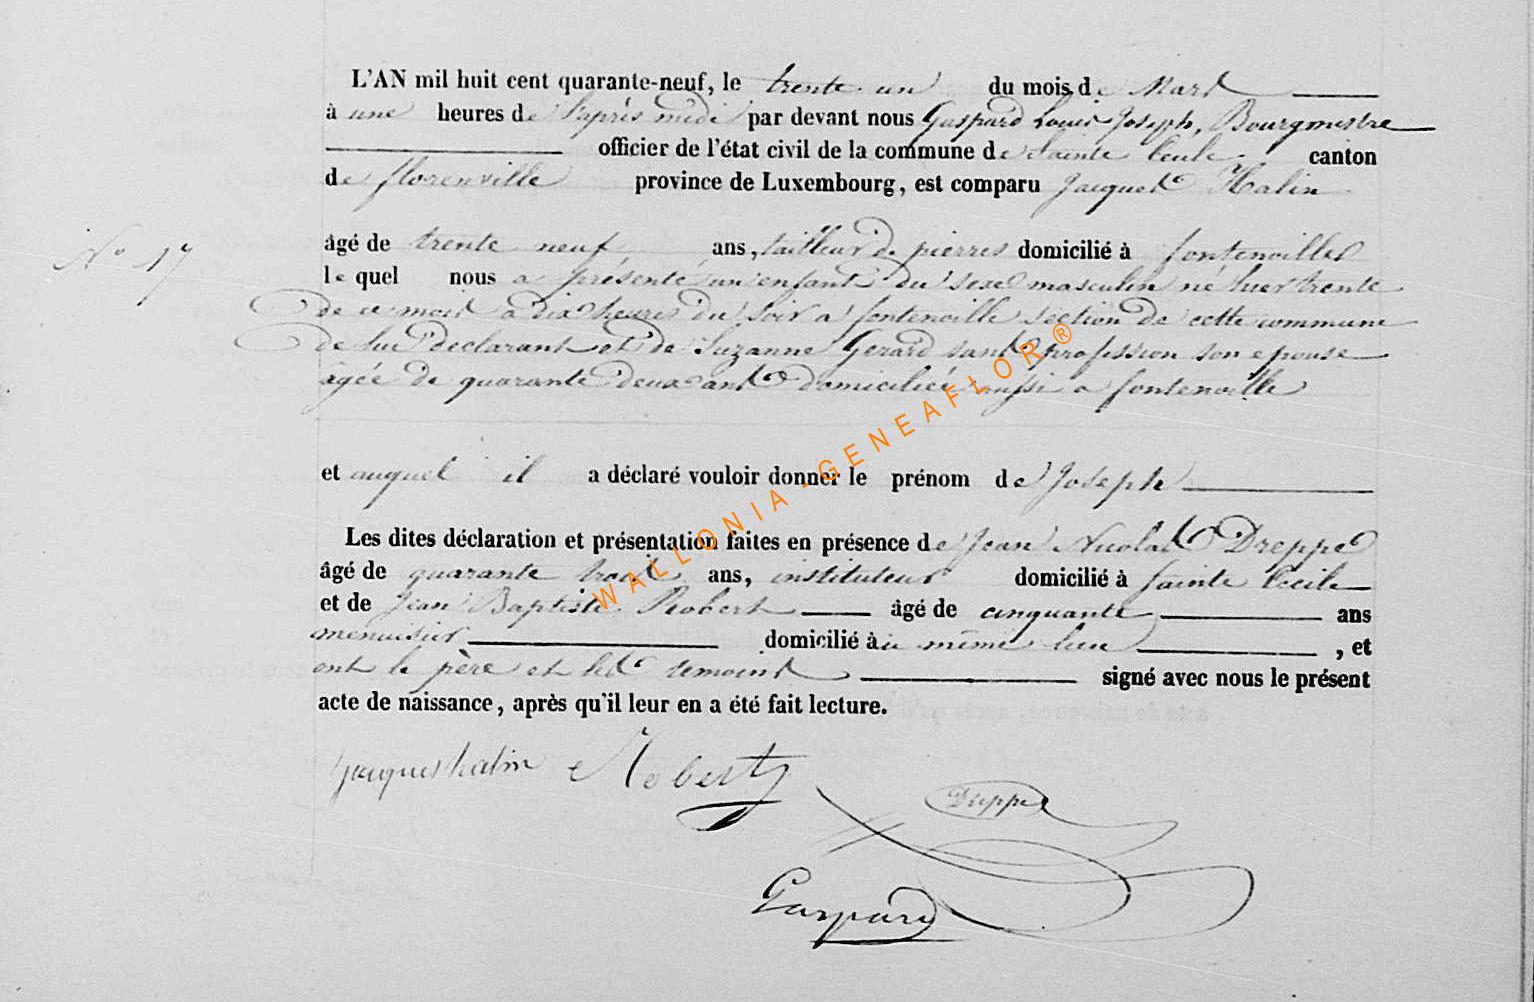 L'AN mil huit cent quarante-neuf, le trente un du mois de Mars
à une heures de l'après midi par devant nous Gaspard Louis Joseph, Bourgmestre
officier de l'état civil de la commune de Sainte Cecile canton
de florenville province de Luxembourg, est comparu Jacques Halin
N° 17
âgé de trente neuf ans, tailleur de pierres domicilié à fontenoille
le quel nous a présenté un enfant du sexe masculin né hier trente
de ce mois à dix heures du soir a fontenoille section de cette commune
de lui declarant et de Suzanne Gerard sans profession son epouse
âgée de quarante deux ans domiciliée aussi a fontenoille
et auquel il a déclaré vouloir donner le prénom de Joseph
Les dites déclaration et présentation faites en présence de Jean Nicolas Dreppe
âgé de quarante trois ans, instituteur domicilié à sainte Cecile
et de Jean Baptiste Robert âgé de cinquante ans
menuisier domicilié à même lieu, et
ont le père et les temoins signé avec nous le présent
acte de naissance, après qu'il leur en a été fait lecture.
jacques halin Robert Dreppe
Gaspard
WALLONIA-GENEAFLOR®